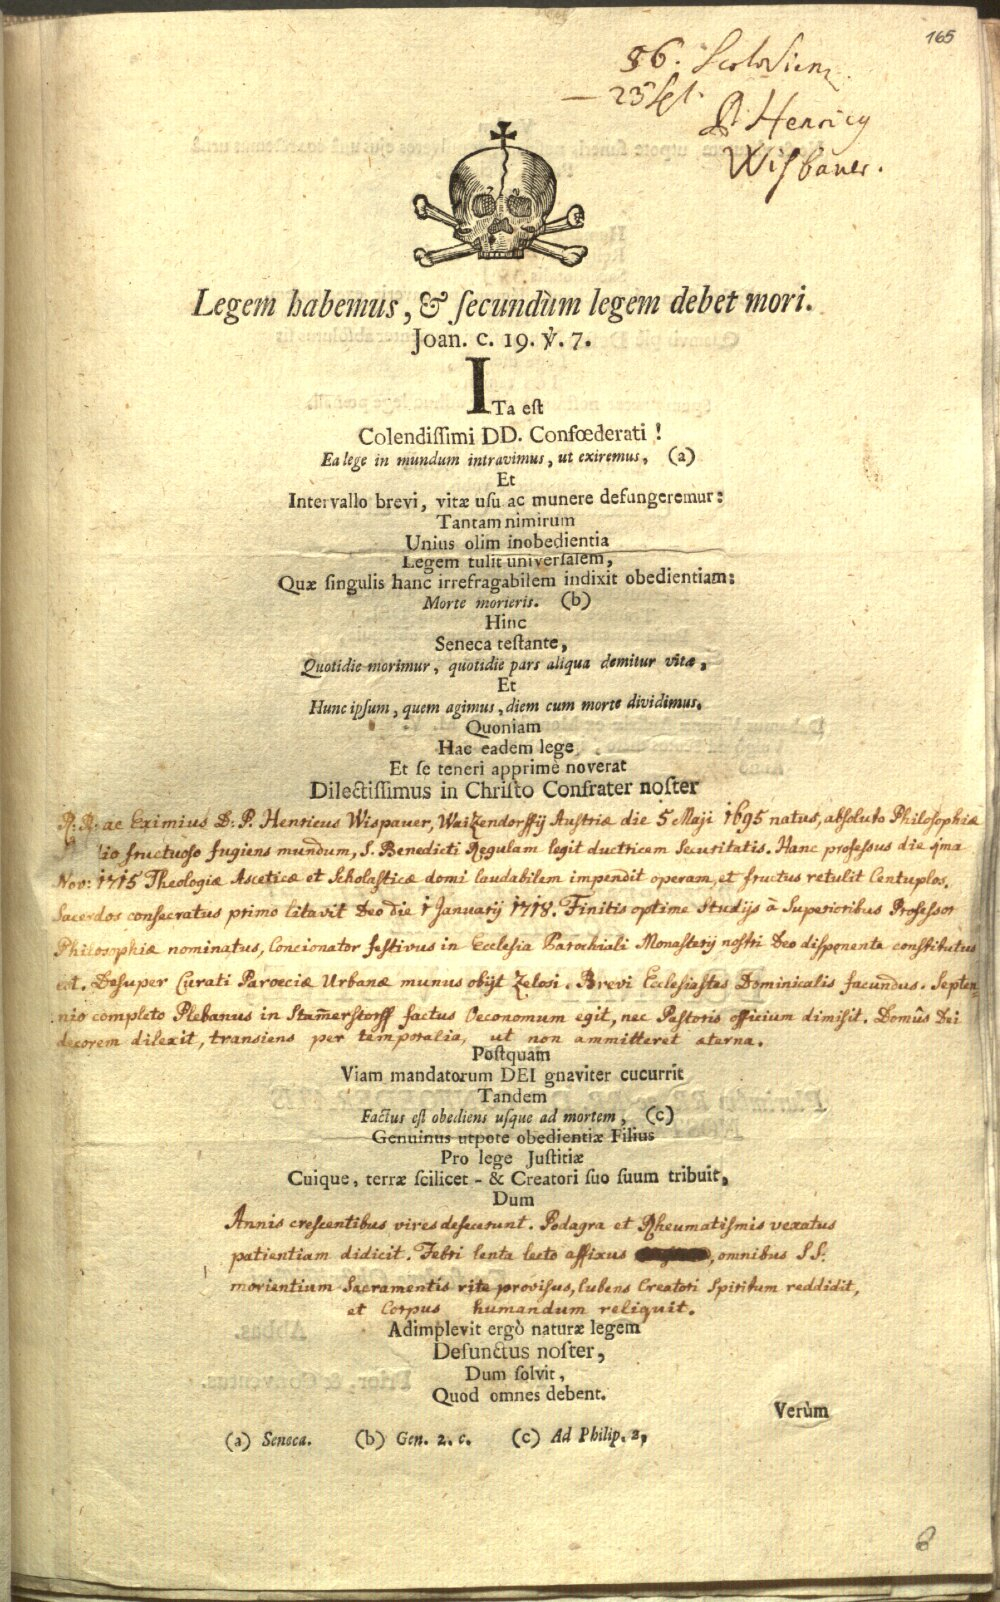 165
86. Scotovien
23 Sept.
P. Henricy
Wisbaver.
Legem habemus, & ſecundùm legem debet mori.
Joan. c. 19. ỳ. 7.
ITa eſt
Colendiſſimi DD. Confœderati !
Ea lege in mundum intravimus, ut exiremus, (a)
Et
Intervallo brevi, vitæ uſu ac munere defungeremur:
Tantam nimirum
Unius olim inobedientia
Legem tulit univerſalem,
Quæ ſingulis hanc irrefragabilem indixit obedientiam:
Morte morieris. (b)
Hinc
Seneca teſtante,
Quotidie morimur, quotidie pars aliqua demitur vitæ,
Et
Hunc ipſum, quem agimus, diem cum morte dividimus.
Quoniam
Hac eadem lege
Et ſe teneri apprimè noverat
Dilectiſſimus in Chriſto Confrater noſter
R. R. ac Eximius D. P. Henricus Wispauer, Waizendorffij Austriæ die 5 Maji 1695 natus, absoluto Philosophiæ
fructuoso fugiens mundum, S. Benedicti Regulam legit ductricem Securitatis. Hanc professus die 9ma
Nov: 1715 Theologiæ Asceticæ et Scholasticæ domi laudabilem impendit operam, et fructus retulit Centuplos.
Sacerdos consecratus primo litavit Deo die 1 Januarij 1718. Finitis optime Studijs à Superioribus Professor
Philosophiæ nominatus, Concionator festivus in Ecclesia Parochiali Monasterij nostri Deo disponente constitutus
est. Desuper Curati Parœciæ Urbanæ munus obijt Zelosi. Brevi Ecclesiastes Dominicalis facundus. Septen-
nio completo Plebanus in Stam̄erstorff factus Oeconomum egit, nec Pastoris officium dimisit. Domûs Dei
decorem dilexit, transiens per temporalia, ut non ammitteret æterna.
Poſtquam
Viam mandatorum DEI gnaviter cucurrit
Tandem
Factus eſt obediens uſque ad mortem, (c)
Genuinus utpote obedientiæ Filius
Pro lege Juſtitiæ
Cuique, terræ ſcilicet - & Creatori ſuo ſuum tribuit,
Dum
Annis crescentibus vires defecerunt. Podagra et Rheumatismis vexatus
patientiam didicit. Febri lenta lecto affixus, omnibus SS.
morientium Sacramentis rite provisus, lubens Creatori Spiritum reddidit,
et Corpus humandum reliquit.
Adimplevit ergò naturæ legem
Defunctus noſter,
Dum ſolvit,
Quod omnes debent.
Verùm
(a) Seneca. (b) Gen. 2. c. (c) Ad Philip. 2,